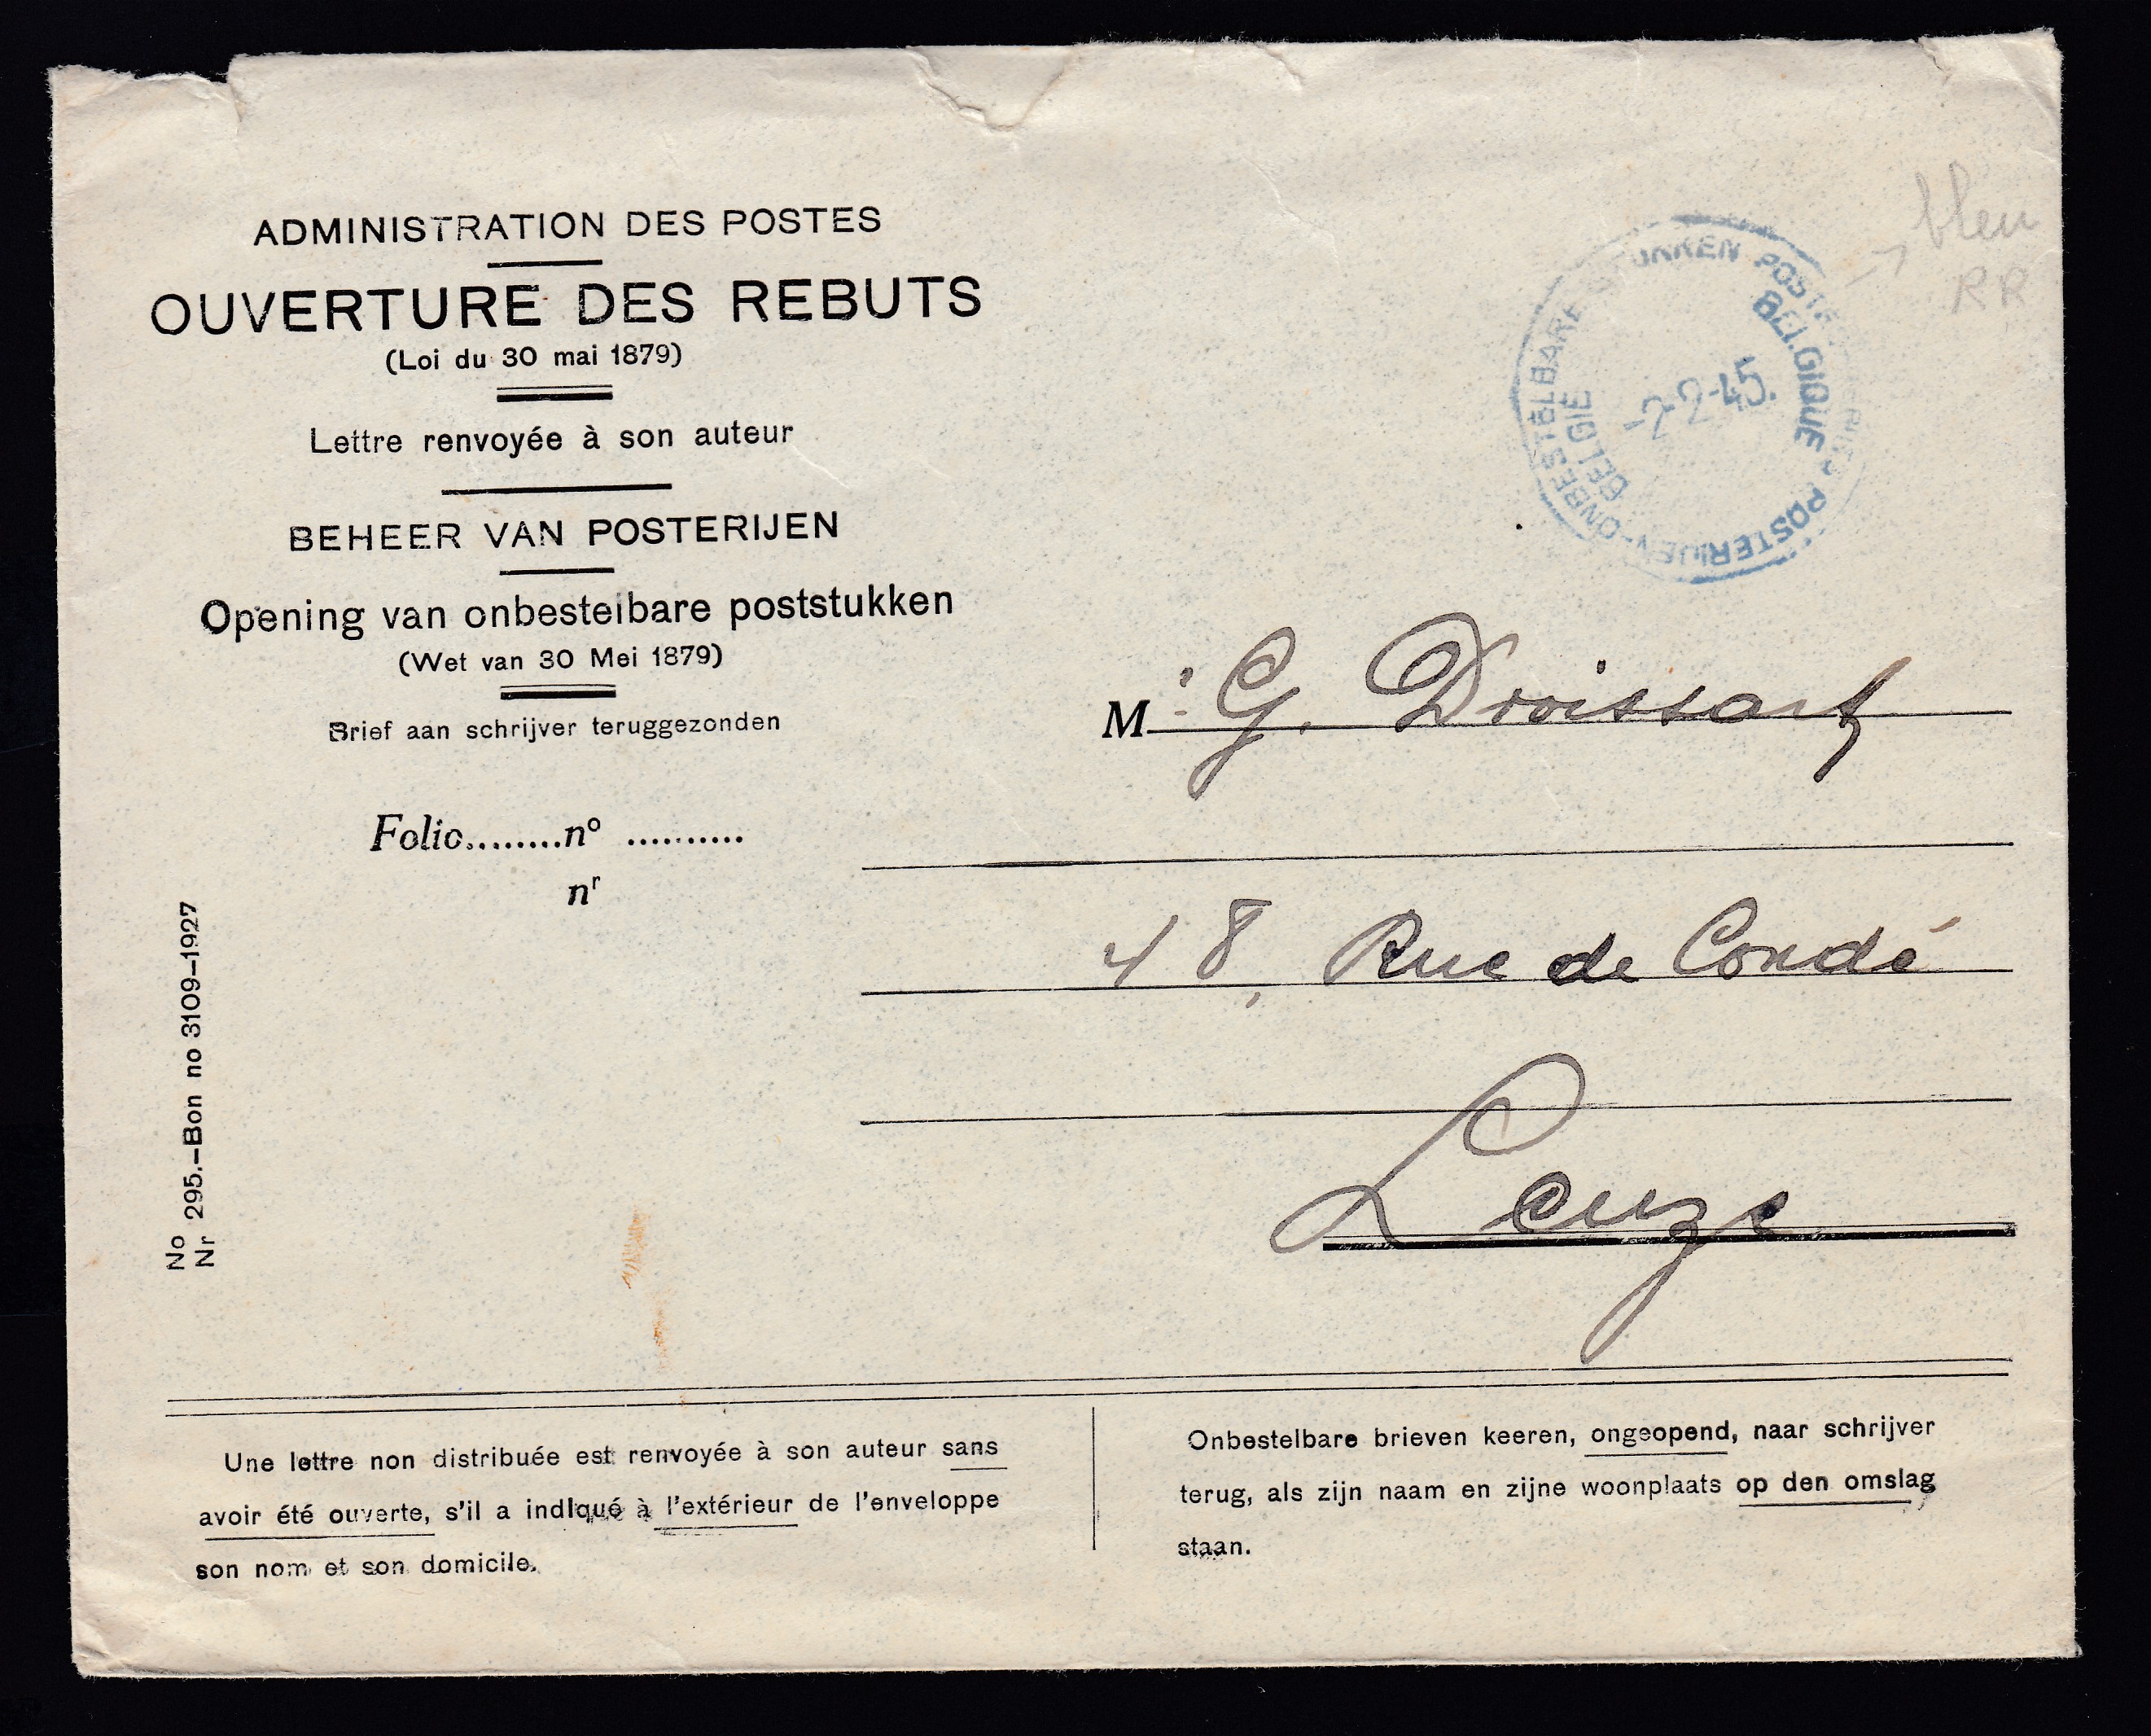 ADMINISTRATION DES POSTES
OUVERTURE DES REBUTS
(Loi du 30 mai 1879)
Lettre renvoyée à son auteur
BEHEER VAN POSTERIJEN
Opening van onbestelbare poststukken
(Wet van 30 Mei 1879)
Brief aan schrijver teruggezonden
Folio........nº ..........
nr
No
Nr 295.–Bon no 3109–1927
bleu
RR
BELGIQUE
POSTERIJEN-ONBESTELBARE STUKKEN
BELGIE
-2-2-45.
Mr G. Droissart
48, Rue de Condé
Leuze
Une lettre non distribuée est renvoyée à son auteur sans
avoir été ouverte, s'il a indiqué à l'extérieur de l'enveloppe
son nom et son domicile.
Onbestelbare brieven keeren, ongeopend, naar schrijver
terug, als zijn naam en zijne woonplaats op den omslag
staan.